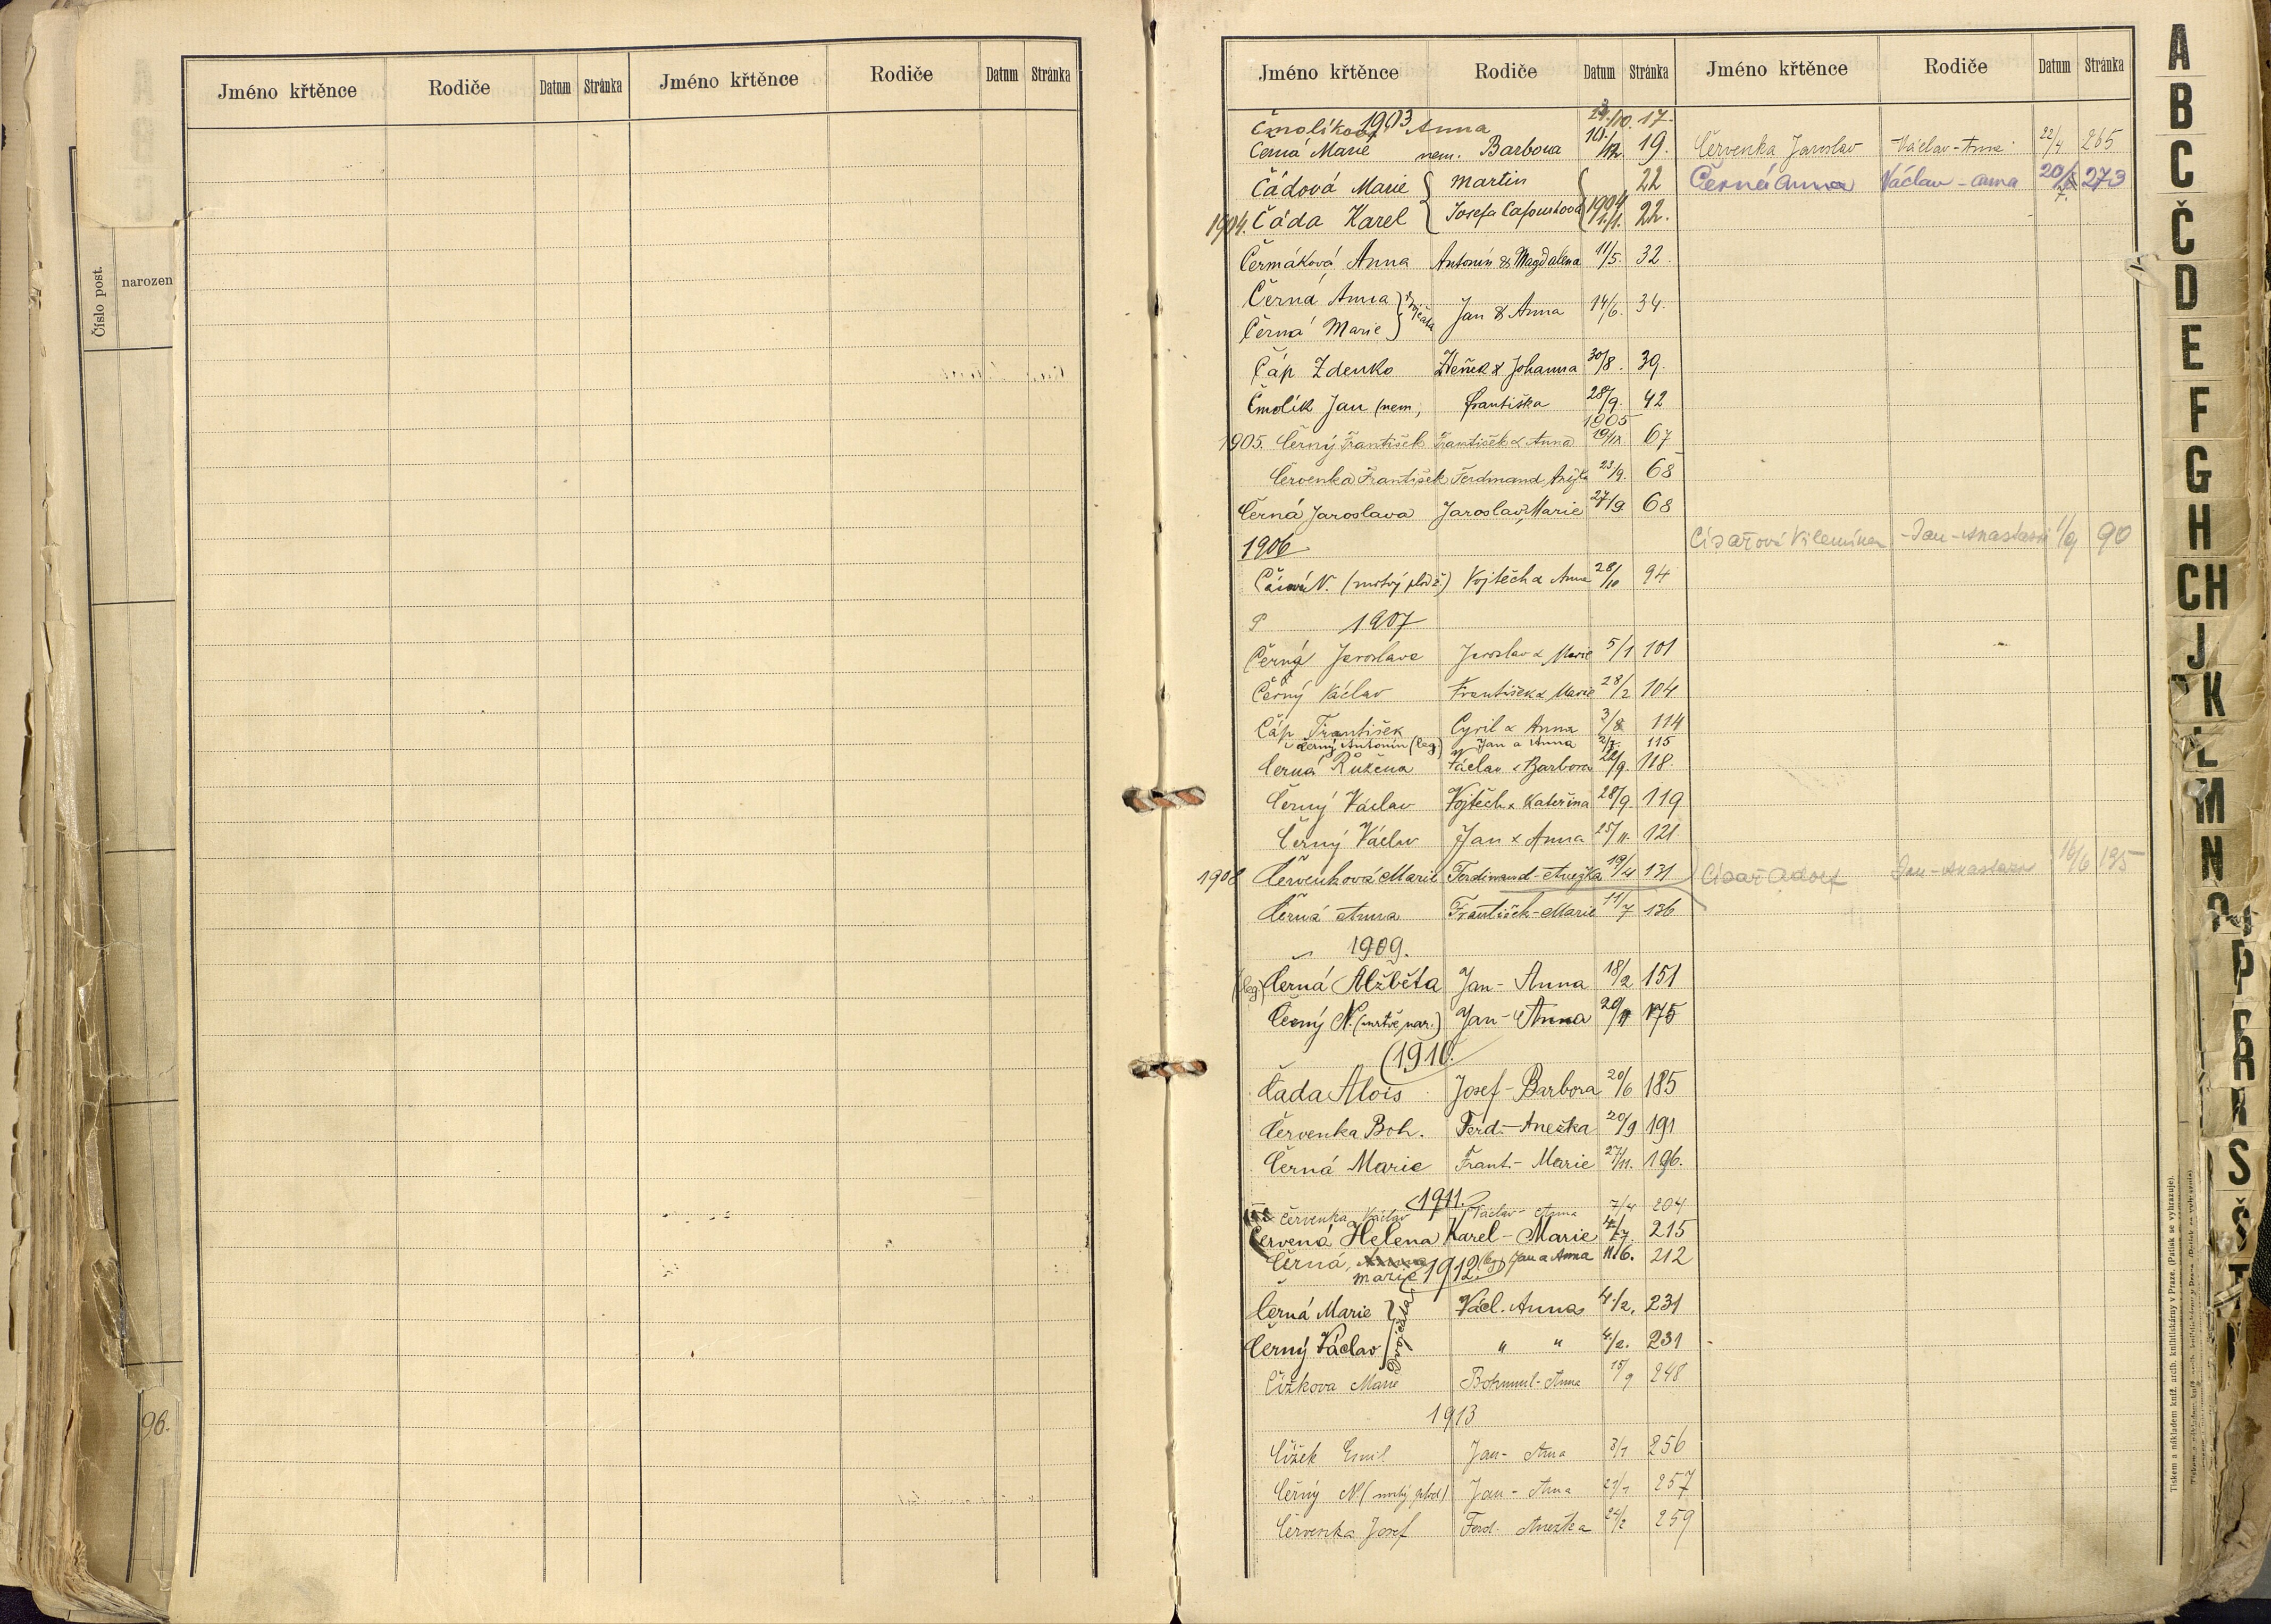 Jméno křtěnce Rodiče Datum Stránka Jméno křtěnce Rodiče Datum Stránka
Číslo post. narozen
96.
Jméno křtěnce Rodiče Datum Stránka Jméno křtěnce Rodiče Datum Stránka
1903
Čmolíková Anna 10. 17.
Černá Marie nem. Barbora 10/12. 19.
Čádová Marie Martin 22
1904. Čáda Karel Josefa 1904 1/1. 22.
Čermáková Anna Antonín & Magdalena 11/5. 32.
Černá Anna
Černá Marie dvojčata Jan & Anna 14/6. 34.
Čáp Zdenko Zdeněk & Johanna 30/8. 39.
Čmolík Jan (nem, Františka 28/9. 42
1905
1905. Černý František František & Anna 67
Červenka František Ferdinand, Anežka 23/9. 68
Černá Jaroslava Jaroslav, Marie 27/9 68
1906
N. (mrtvý plod) Vojtěch a Anna 28/10 94
1907
Černá Jaroslava Jaroslav & Marie 5/1 101
Černý Václav František & Marie 28/2 104
Čáp František Cyril & Anna 3/8 114
Černý Antonín (leg) Jan a Anna 115
Černá Růžena Václav & Barbora /9. 118.
Černý Václav Vojtěch & Kateřina 28/9. 119
Černý Václav Jan & Anna 25/11. 121
1908 Červenková Marie Ferdinand-Anežka 19/4 131
Černá Anna František-Marie 11/7 136
1909.
(leg) Černá Alžběta Jan - Anna 18/2 151
Černý N. (mrtvě nar.) Jan - Anna 20/11 175
1910.
Čada Alois Josef - Barbora 20/6 185
Červenka Boh. Ferd. - Anežka 20/9 191
Černá Marie Frant. - Marie 27/11. 196.
1911.
Červenka Václav Václav - Anna 7/4 204
Červená Helena Karel - Marie 4/7. 215
Černá, Anna (leg) Jan a Anna 11.6. 212
Marie 1912.
Černá Marie Václ. Anna 4./2. 231
Dvojčata
Černý Václav " " 4/2. 231
Čížkova Marie Bohumil - Anna 15/9 248
1913
Čížek Emil Jan - Anna 3/1 256
Černý N (mrtvý plod) Jan - Anna 257
Červenka Josef Ferd. Anežka 24/2 259
Červenka Jaroslav Václav - Anna 22/4 265
Černá Anna Václav - Anna 20/7. 273
Císařová Vilemína - Jan - 1/9 90
Císař Adolf Jan - 16/6 135
A
B
C
Č
D
E
F
G
H
CH
J
K
L
M
N
O
P
R
Ř
S
Š
T
Tiskem a nákladem kníž. arcib. knihtiskárny v Praze. (Patisk se vyhrazuje).